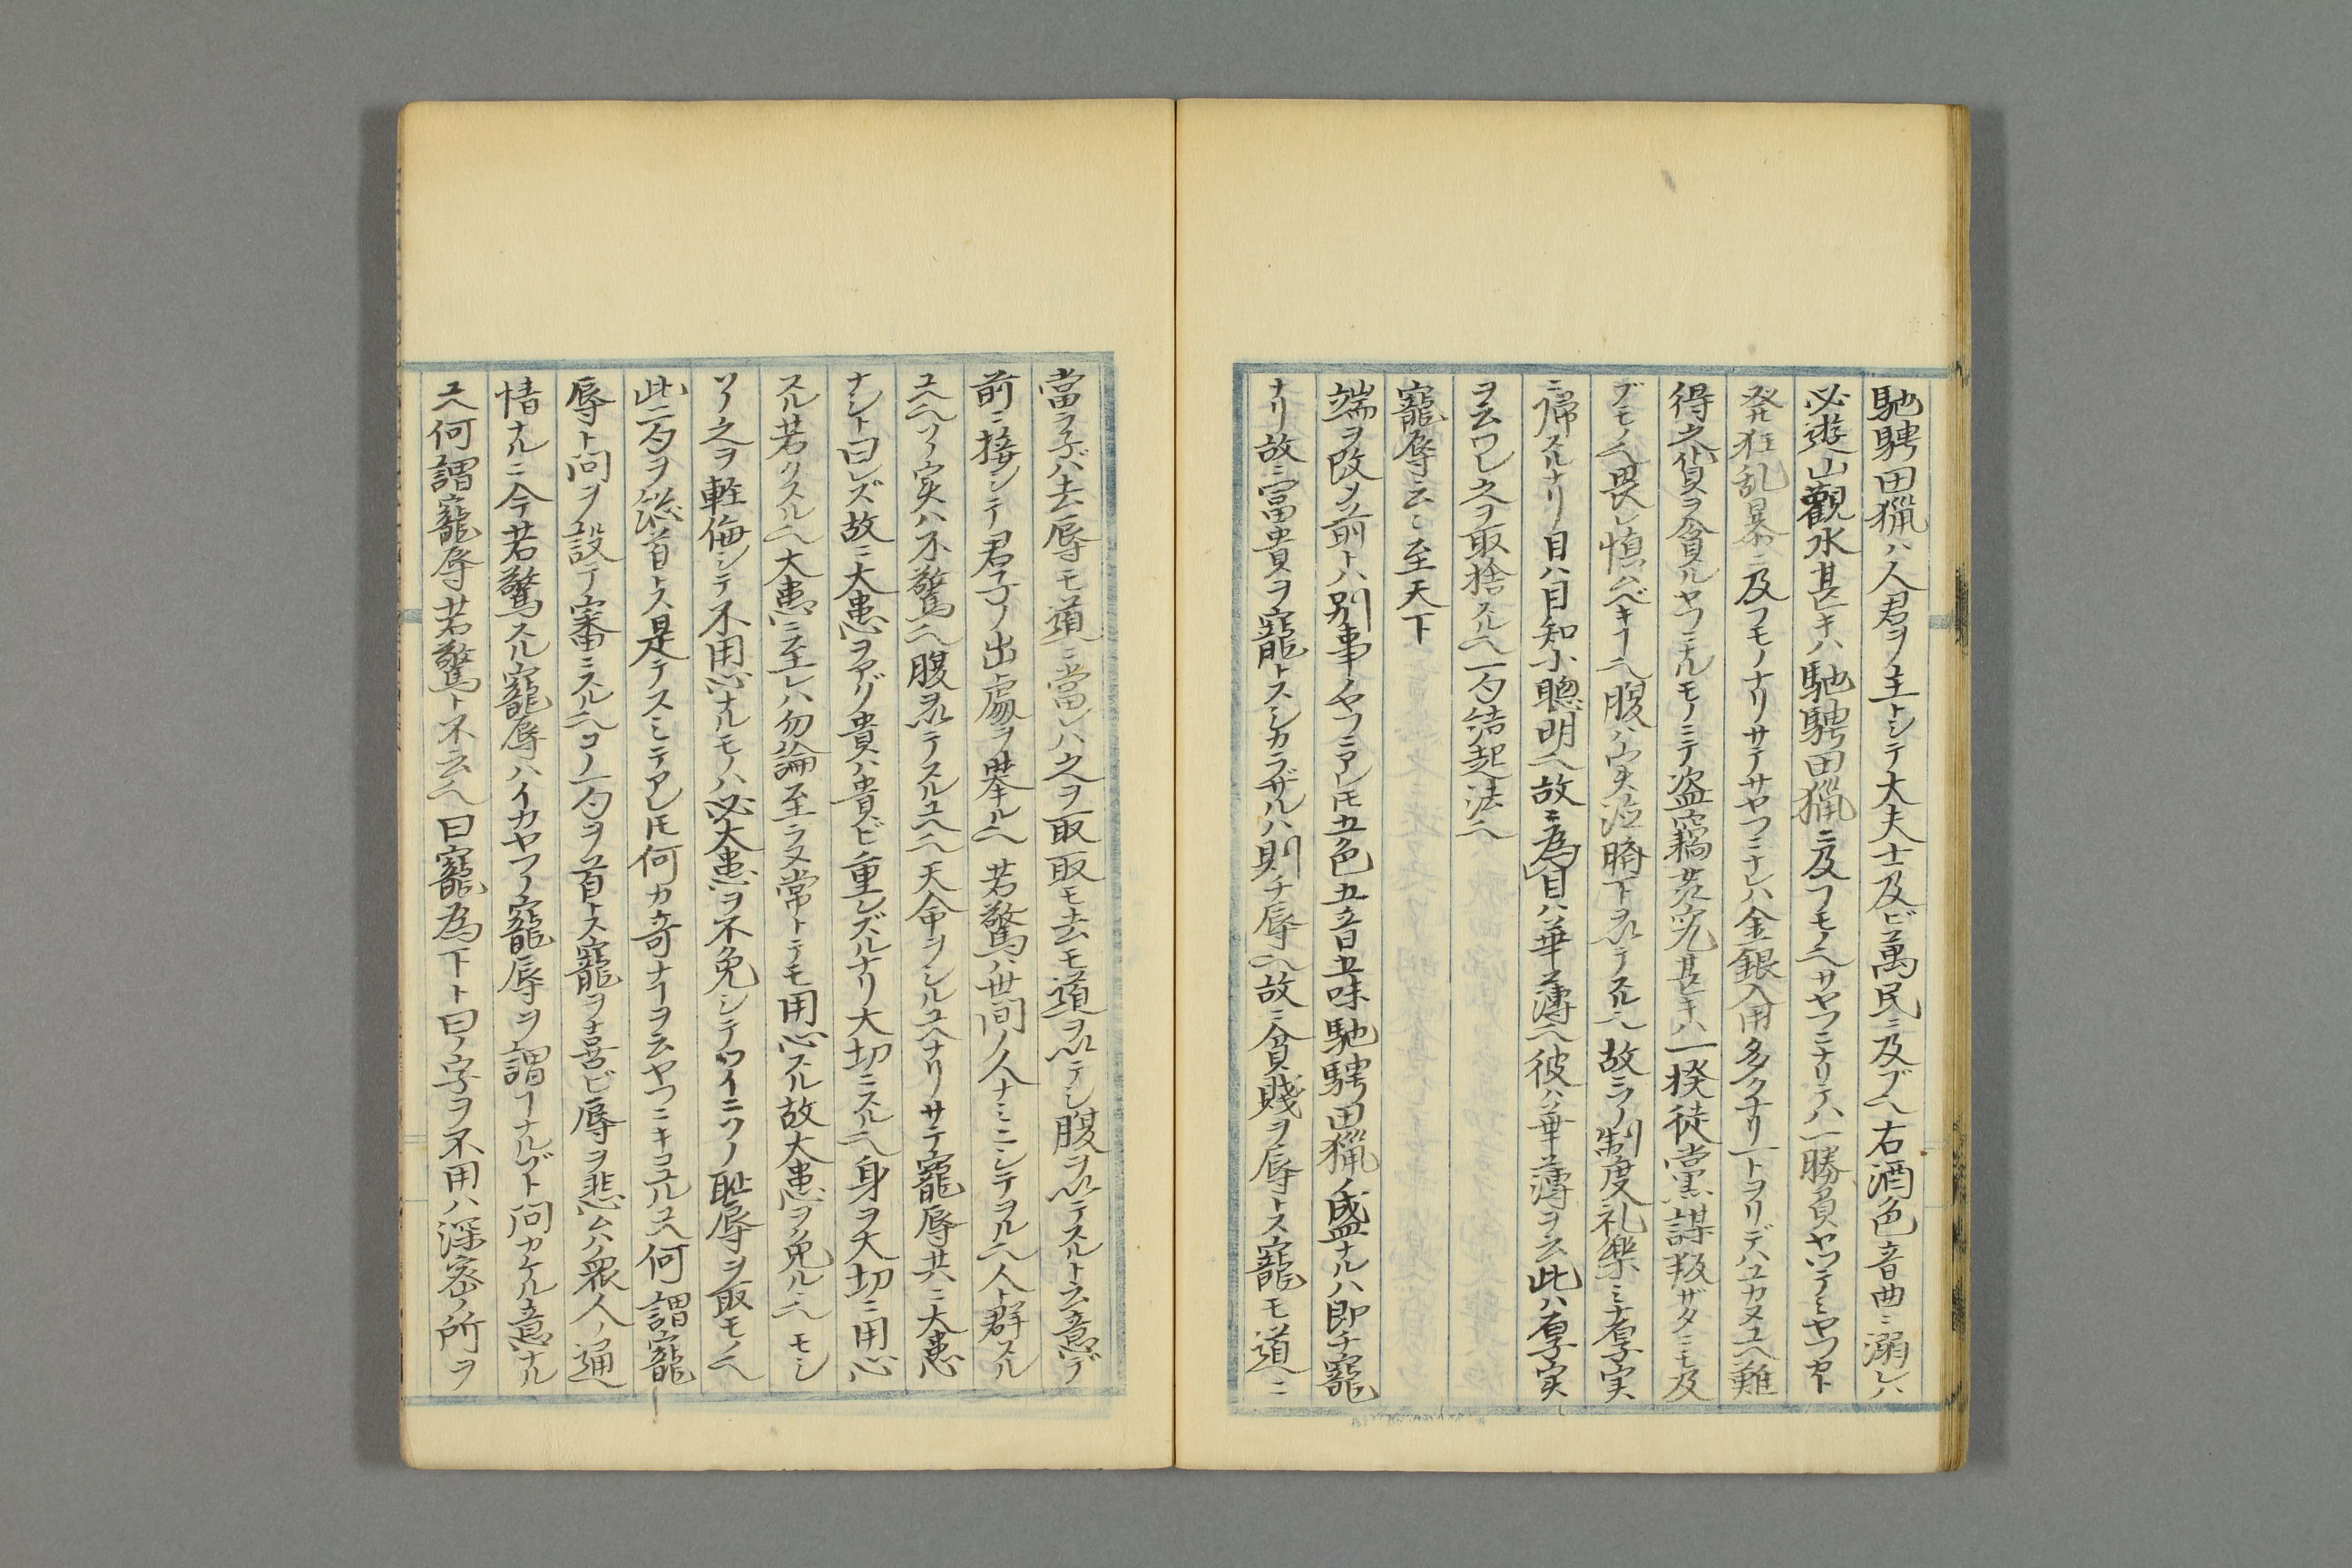 馳騁田猟ハ人君ヲ主トシテ大夫士及ビ萬民ニ及ブ也右酒色音曲ニ溺レハ
必遊山觀水甚キハ馳騁田猟ニ及フモノ也サヤフニナリテハ一勝負ヤツテミヤフカト
発狂乱暴ニ及フモノナリサテサヤフニナレハ金銀入用多クナリ一トヲリデハユカヌユヘ難
得之貨ヲ貪ルヤフニナルモノニテ盗竊姦宄甚キハ一揆徒黨謀叛ザタニモ及
ブモノ也畏レ慎ムベキヿ也腹ハ実泣臍下ヲ以テスル也故ニソノ制度礼樂ミナ厚実
ニ帰スルナリ目ハ目知小聰明也故ニ為目ハ華薄也彼ハ華薄ヲ云此ハ厚実
ヲ云ワレ之ヲ取捨スル也一句結起法也
寵辱云々至天下
端ヲ改メ前トハ別事ノヤフニアレ𪜈五色五音五味馳騁田猟ノ盛ナルハ即チ寵
ナリ故ニ富貴ヲ寵トスシカラザルハ則チ辱也故ニ貧賤ヲ辱トス寵モ道ニ
當ラ子バ去辱モ道ニ當レハ之ヲ取取モ去モ道ヲ以テシ腹ヲ以テスルト云意デ
前ニ接シテ君子ノ出處ヲ挙ル也若驚ハ世間ノ人ナミニシテヲル也人ト群スル
ユヘ也ソノ実ハ不驚也腹ヲ以テスルユヘ也天命ヲシルユヘナリサテ寵辱共ニ大患
ナシト曰レズ故ニ大患ヲアグ貴ハ貴ビ重レズルナリ大切ニスル也身ヲ大切ニ用心
スル若クスル也大患ニ至レハ勿論至ラヌ常トテモ用心スル故大患ヲ免ル也モシ
ソノ之ヲ軽侮シテ不用心ナルモノハ必大患ヲ不免シテツイニソノ耻辱ヲ取モノ也
此二句ヲ総首トス是テスミテアレ𪜈何カ奇ナイヲ云ヤフニキコユルユヘ何謂寵
辱ト問ヲ設テ審ニスル也コノ一句ヲ首トス寵ヲ喜ビ辱ヲ悲ムハ衆人ノ通
情ナルニ今若驚スル寵辱ハイカヤフノ寵辱ヲ謂ヿナルゾト問カケル意ナル
ユヘ何謂寵辱若驚ト不云也曰寵為下ト曰ノ字ヲ不用ハ深密ノ所ヲ